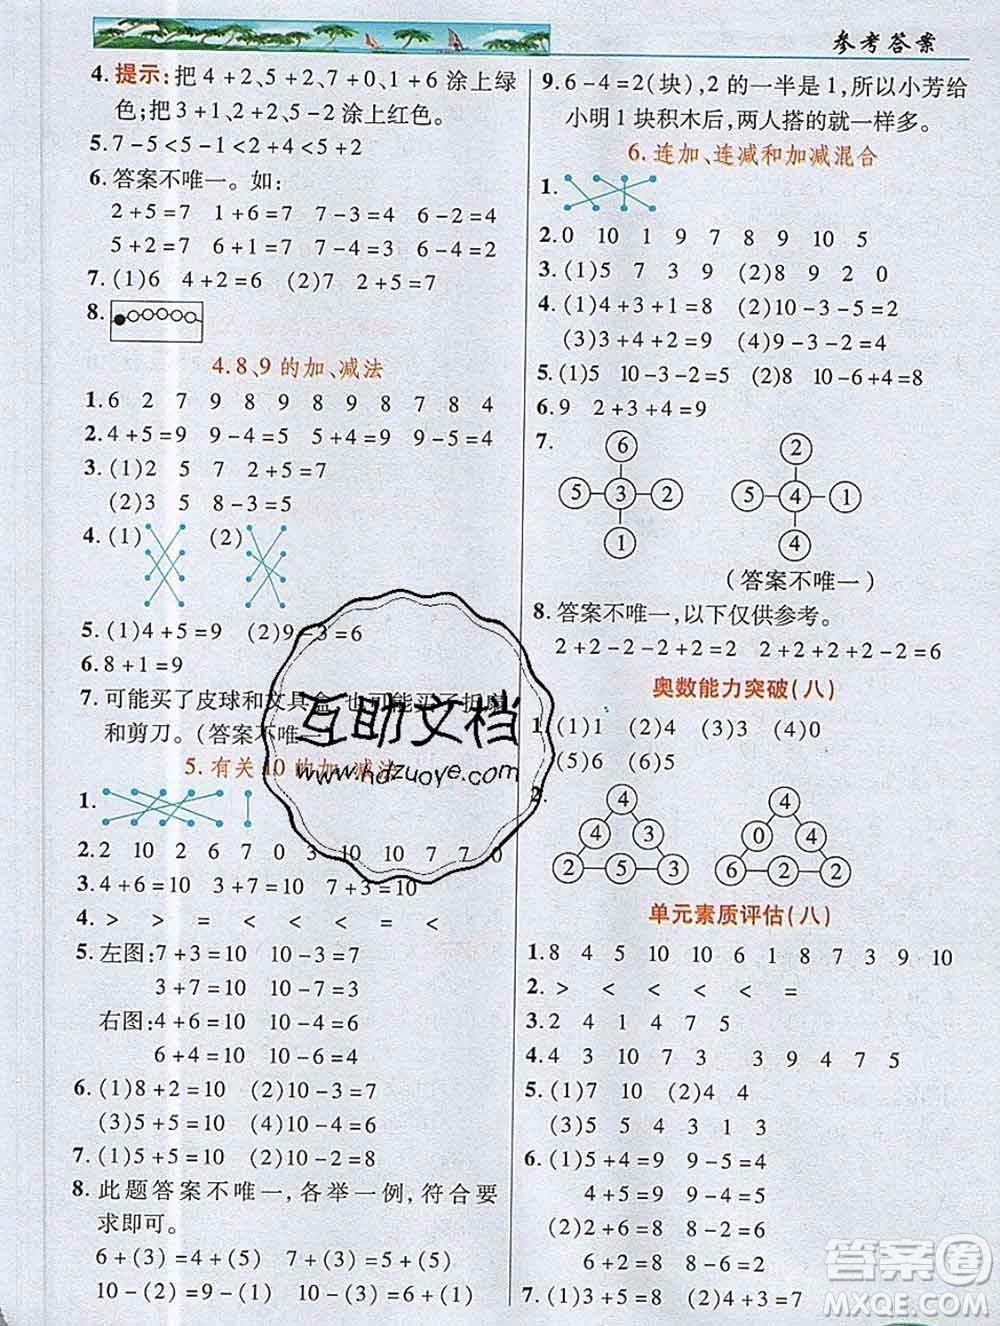 参考答案
4.提示:把4+2、5+2、7+0、1+6涂上绿
色;把3+1、2+2、5-2涂上红色。
5.7-5<5-1<2+4<5+2
6.答案不唯一。如:
2+5=7 1+6=7 7-3=4 6-2=4
5+2=7 6+1=7 7-4=3 6-4=2
7.(1)6 4+2=6 (2)7 2+5=7
8.
4.8、9的加、减法
1.6 2 7 9 8 9 8 9 8 7 8 4
2.4+5=9 9-4=5 5+4=9 9-5=4
3.(1)2 5 7 2+5=7
(2)3 5 8-3=5
4.(1) (2)
5.(1)4+5=9 (2)9-3=6
6.8+1=9
7.可能买了皮球和文具盒,也可能买了折扇
和剪刀。(答案不唯一)
5.有关10的加、减法
1.
2.2 10 2 6 7 0 3 10 10 7 7 0
3.4+6=10 3+7=10 7+3=10
4.> > = < < < = <
5.左图:7+3=10 10-3=7
3+7=10 10-7=3
右图:4+6=10 10-4=6
6+4=10 10-6=4
6.(1)8+2=10 (2)10-3=7
(3)5+5=10 (4)10-6=4
7.(1)5+5=10 (2)10-2=8
8.此题答案不唯一,各举一例,符合要
求即可。
6+(3)=4+(5) 7+(3)=(5)+(5)
10-(2)=9-(1) 10-(4)=8-(2)
9.6-4=2(块),2的一半是1,所以小芳给
小明1块积木后,两人搭的就一样多。
6.连加、连减和加减混合
1.
2.0 10 1 9 7 8 9 10 5
3.(1)5 7 3 (2)8 9 2 0
4.(1)4+3+1=8 (2)10-3-5=2
(3)3+2+4=9 (4)9-3-4=2
5.(1)5 10-3-2=5 (2)8 10-6+4=8
6.9 2+3+4=9
7.
6 2
5 3 2 5 4 1
1 4
(答案不唯一)
8.答案不唯一,以下仅供参考。
2+2-2-2+2=2 2+2+2+2-2=6
奥数能力突破(八)
1.(1)1 (2)4 (3)4 (4)0
(5)6 (6)5
2.
4 4
4 3 0 4
2 5 2 6 2 2
单元素质评估(八)
1.8 4 5 10 10 6 1 8 7 3 9 10
2.> < > < < < =
3.2 1 1 4 7 5
4.4 5 10 7 3 9 4 7 5
5.(1)7 10 (2)4 4
(3)5 5 4 3 1 2
6.(1)5+4=9 9-5=4
4+5=9 9-4=5
(2)2+6=8 8-2=6
6+2=8 8-6=2
7.(1)5+5=10 (2)4+3=7
互助文档
www.hdzuoye.com
答案圈
MXQE.COM